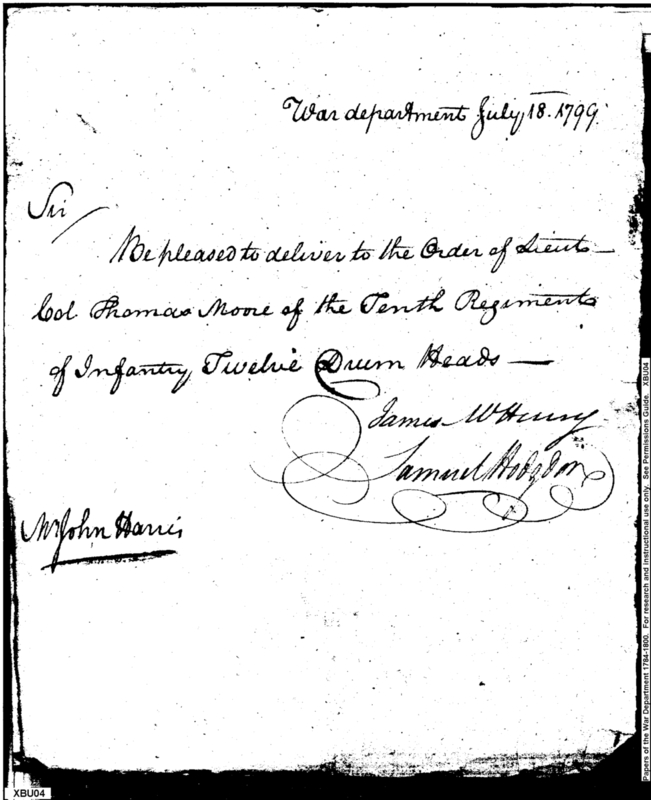 War department July 18. 1799.
Sir
Be pleased to deliver to the Order of Lieut
Col. Thomas Moore of the Tenth Regiment
of Infantry, Twelve Drum Heads —
James McHenry
Samuel Hodgdon
Mr John Harris
Papers of the War Department 1784-1800. For research and instructional use only. See Permissions Guide. XBU04
XBU04